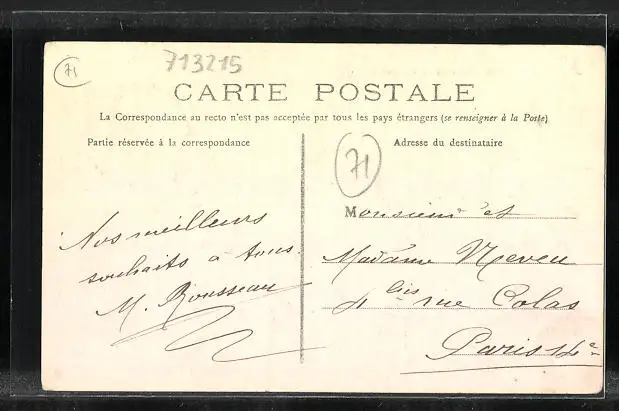 71
713215
CARTE POSTALE
La Correspondance au recto n'est pas acceptée par tous les pays étrangers (se renseigner à la Poste)
Partie réservée à la correspondance
Adresse du destinataire
71
Nos meilleurs
souhaits à tous.
M. Rousseau
Monsieur et
Madame Neveu
4 bis rue Colas
Paris 14e